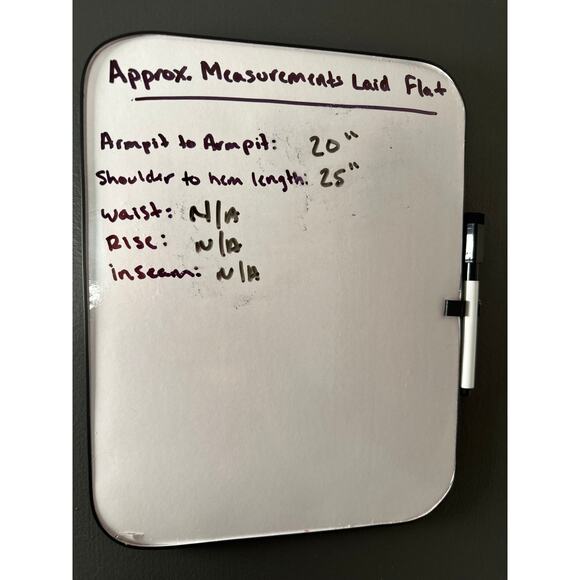 Approx. Measurements Laid Flat
Armpit to Armpit: 20"
Shoulder to hem length: 25"
waist: N/A
Rise: N/A
inseam: N/A